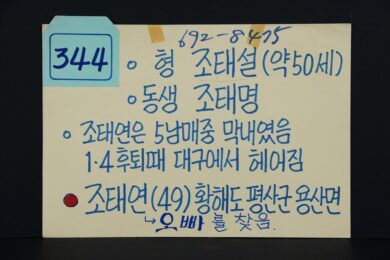 344
692-8475
○ 형 조태설(약50세)
○ 동생 조태명
○ 조태연은 5남매중 막내였음
1·4후퇴때 대구에서 헤어짐
● 조태연(49) 황해도 평산군 용산면
↳ 오빠를 찾음.